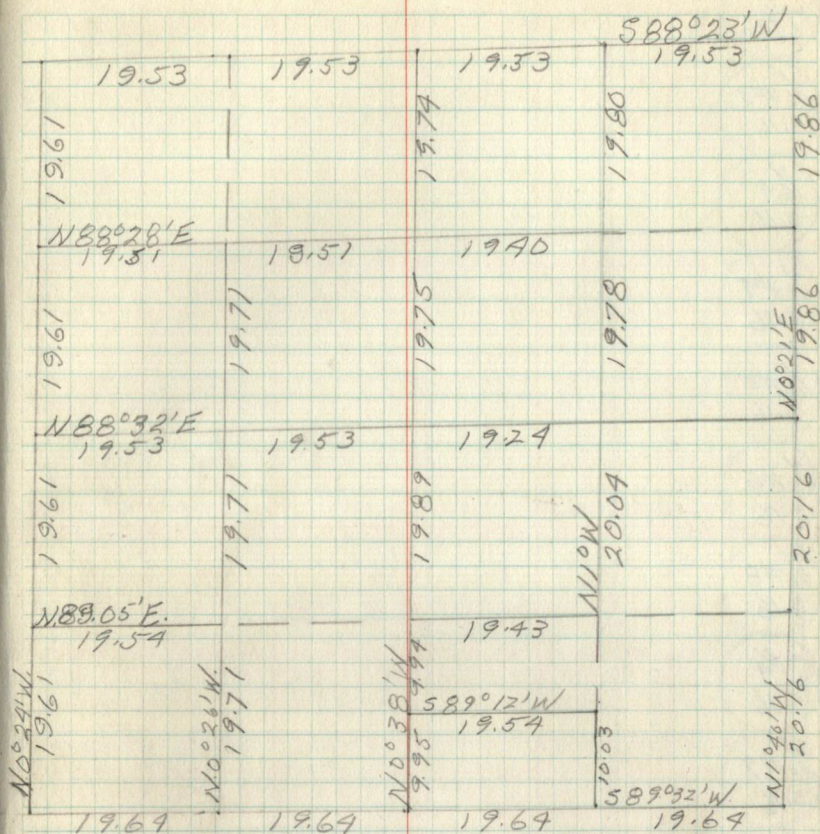 S88°23'W
19.53 19.53 19.53 19.53
19.61 19.74 19.80 19.86
N88°28'E
19.51 19.51 19.40
19.61 19.71 19.75 19.78 N0°21'E 19.86
N88°32'E
19.53 19.53 19.24
19.61 19.71 19.89 N11°W 20.04 20.16
N.89.05'E.
19.54 19.43
N0°24'W. 19.61 N.0°26'W. 19.71 N0°38'W 9.94 N11°46'W 20.16
S89°12'W
19.54
9.95 10.03
S89°32'W.
19.64 19.64 19.64 19.64